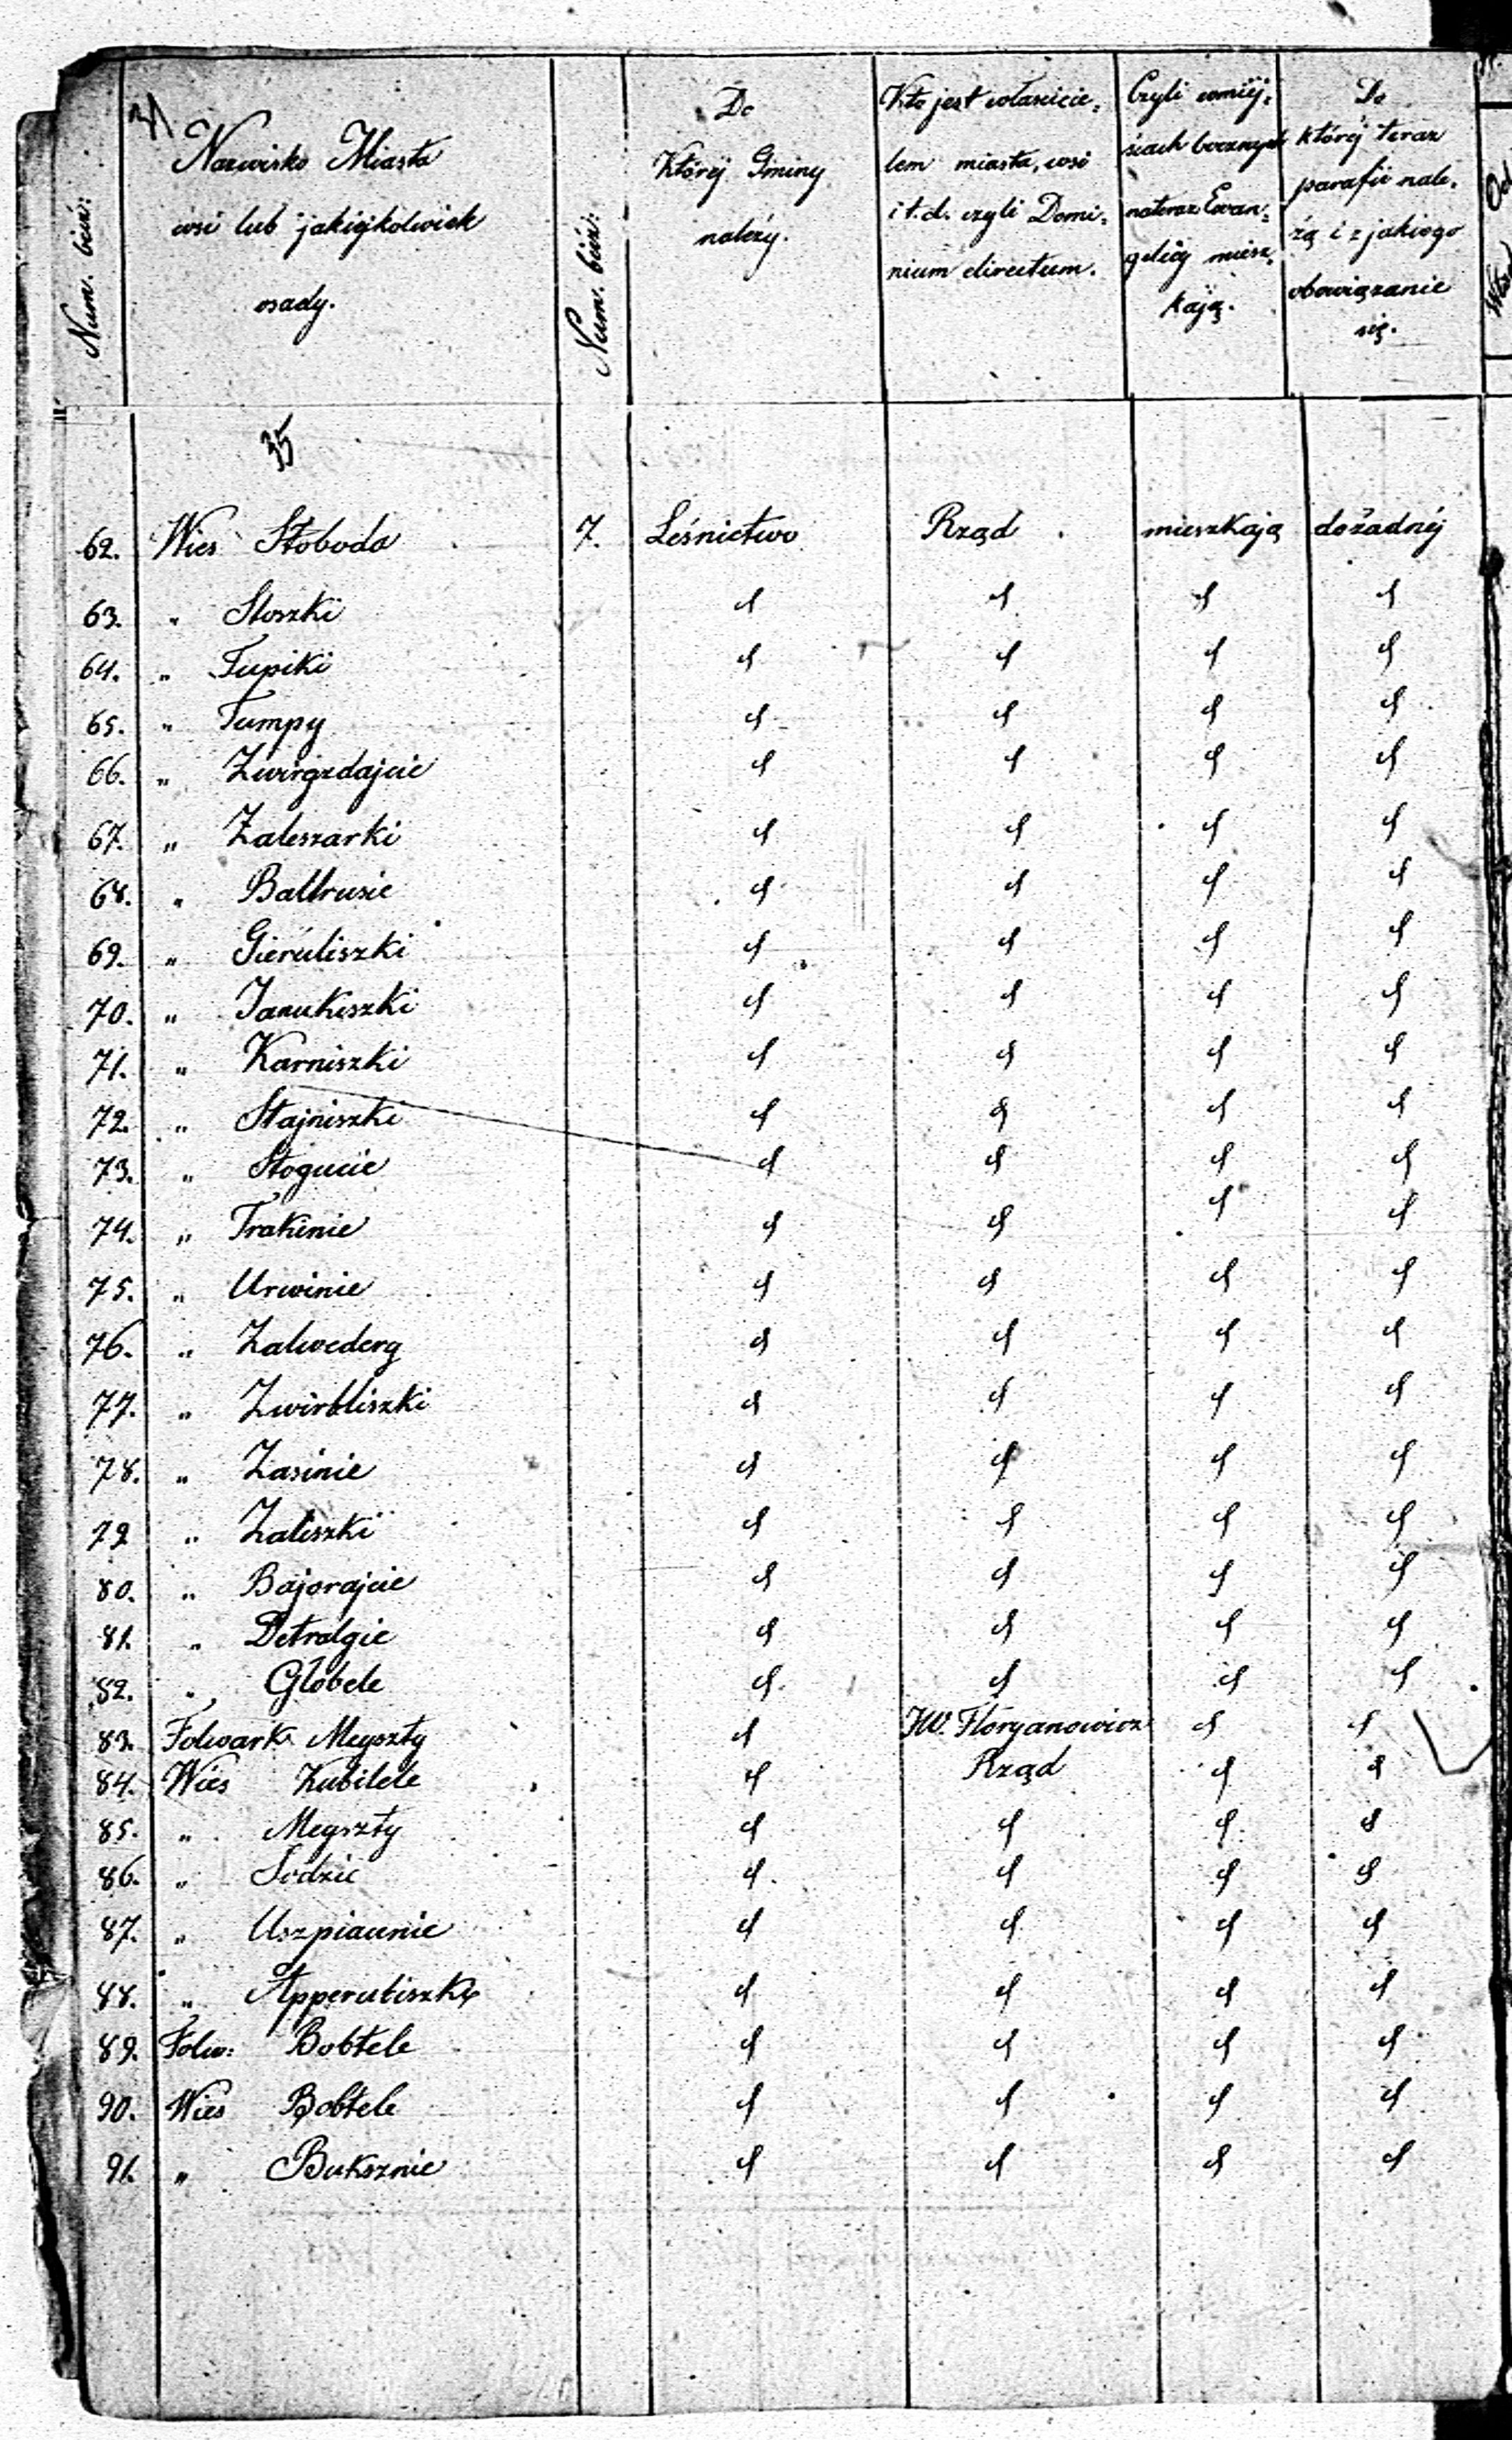 Num. bież:
Nazwisko Miasta
wsi lub jakiéjkolwiek
osady.
Num. bież:
Do
Któréj Gminy
należy.
Kto jest właścicie-
lem miasta, wsi
i t. d. czyli Domi-
nium directum.
Czyli wmiéj-
scach
na teraz Ewan-
gelicy miesz-
kają.
Do
któréj teraz
parafii nale-
żą i z jakiego
obowiązanie
się.
35
62. Wieś Słoboda 7. Leśnictwo Rząd mieszkają do żadnéj
63. " Stoszki d d d d
64. " Tupiki d d d d
65. " Tumpy d d d d
66. " Zwirgzdajcie d d d d
67. " Zaleszarki d d d d
68. " Baltrusie d d d d
69. " Gieruliszki d d d d
70. " Janukiszki d d d d
71. " Karniszki d d d d
72. " Stajniszki d d d d
73. " Stogucie d d d d
74. " Trakinie d d d d
75. " Urwinie d d d d
76. " Zalwederg d d d d
77. " Zwirbliszki d d d d
78. " Zasinie d d d d
79 " Zaliszki d d d d
80. " Bajorajcie d d d d
81. " Detralgie d d d d
82. " Głobele d d d d
83. Folwark Megszty d JW. Floryanowicz d d
84. Wieś Kubilele d Rząd d d
85. " Megszty d d d d
86. " Sodzie d d d d
87. " Uszpiaunie d d d d
88. " Apperubiszky d d d d
89. Folw: Bobtele d d d d
90. Wieś Bobtele d d d d
91. " Buksznie d d d d